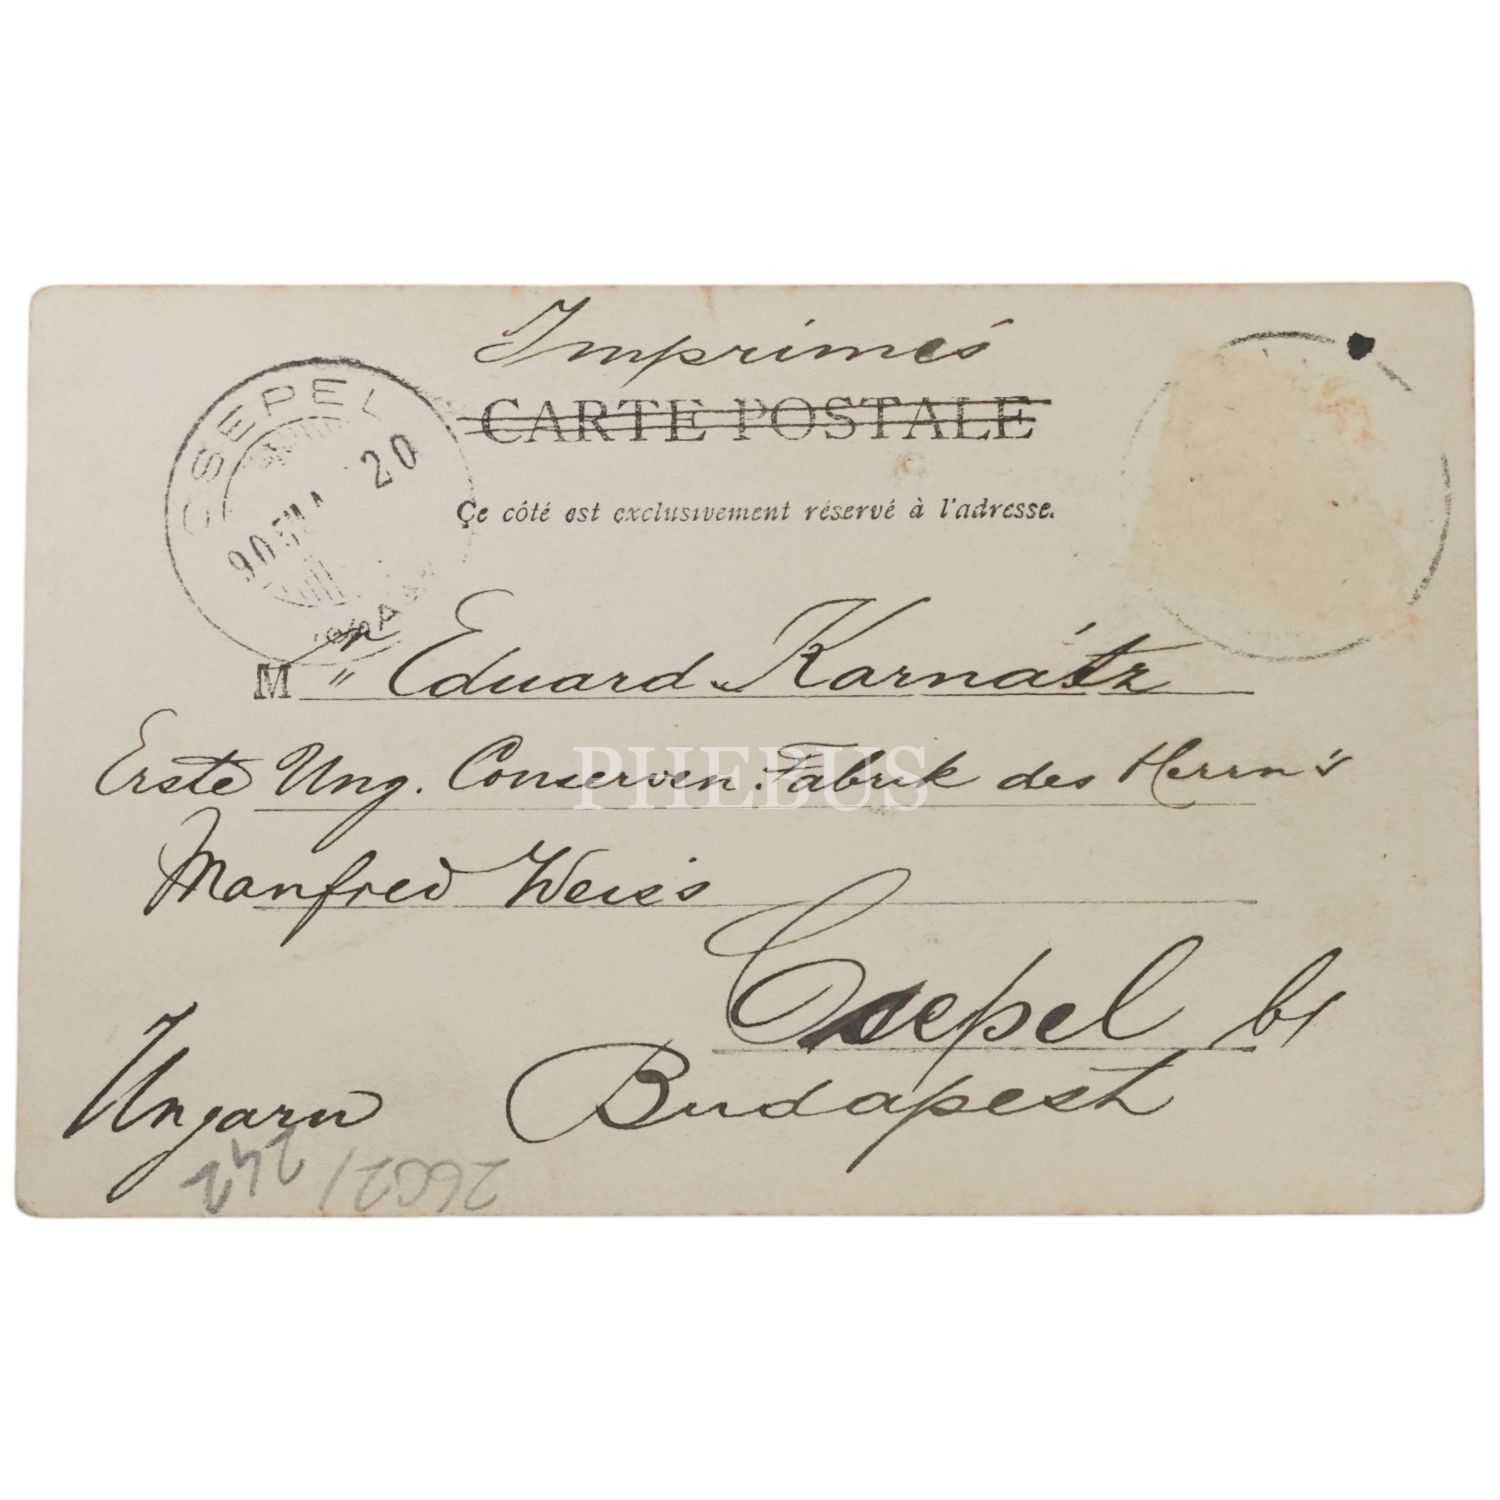 Imprimés
CARTE POSTALE
Ce côté est exclusivement réservé à l'adresse.
CSEPEL
905 MA 20
M " Eduard Karnátz
Erste Ung. Conserven-Fabrik des Herrn's
PHEBUS
Manfred Weiss
Csepel b/
Budapest
Ungarn
242 / 2602